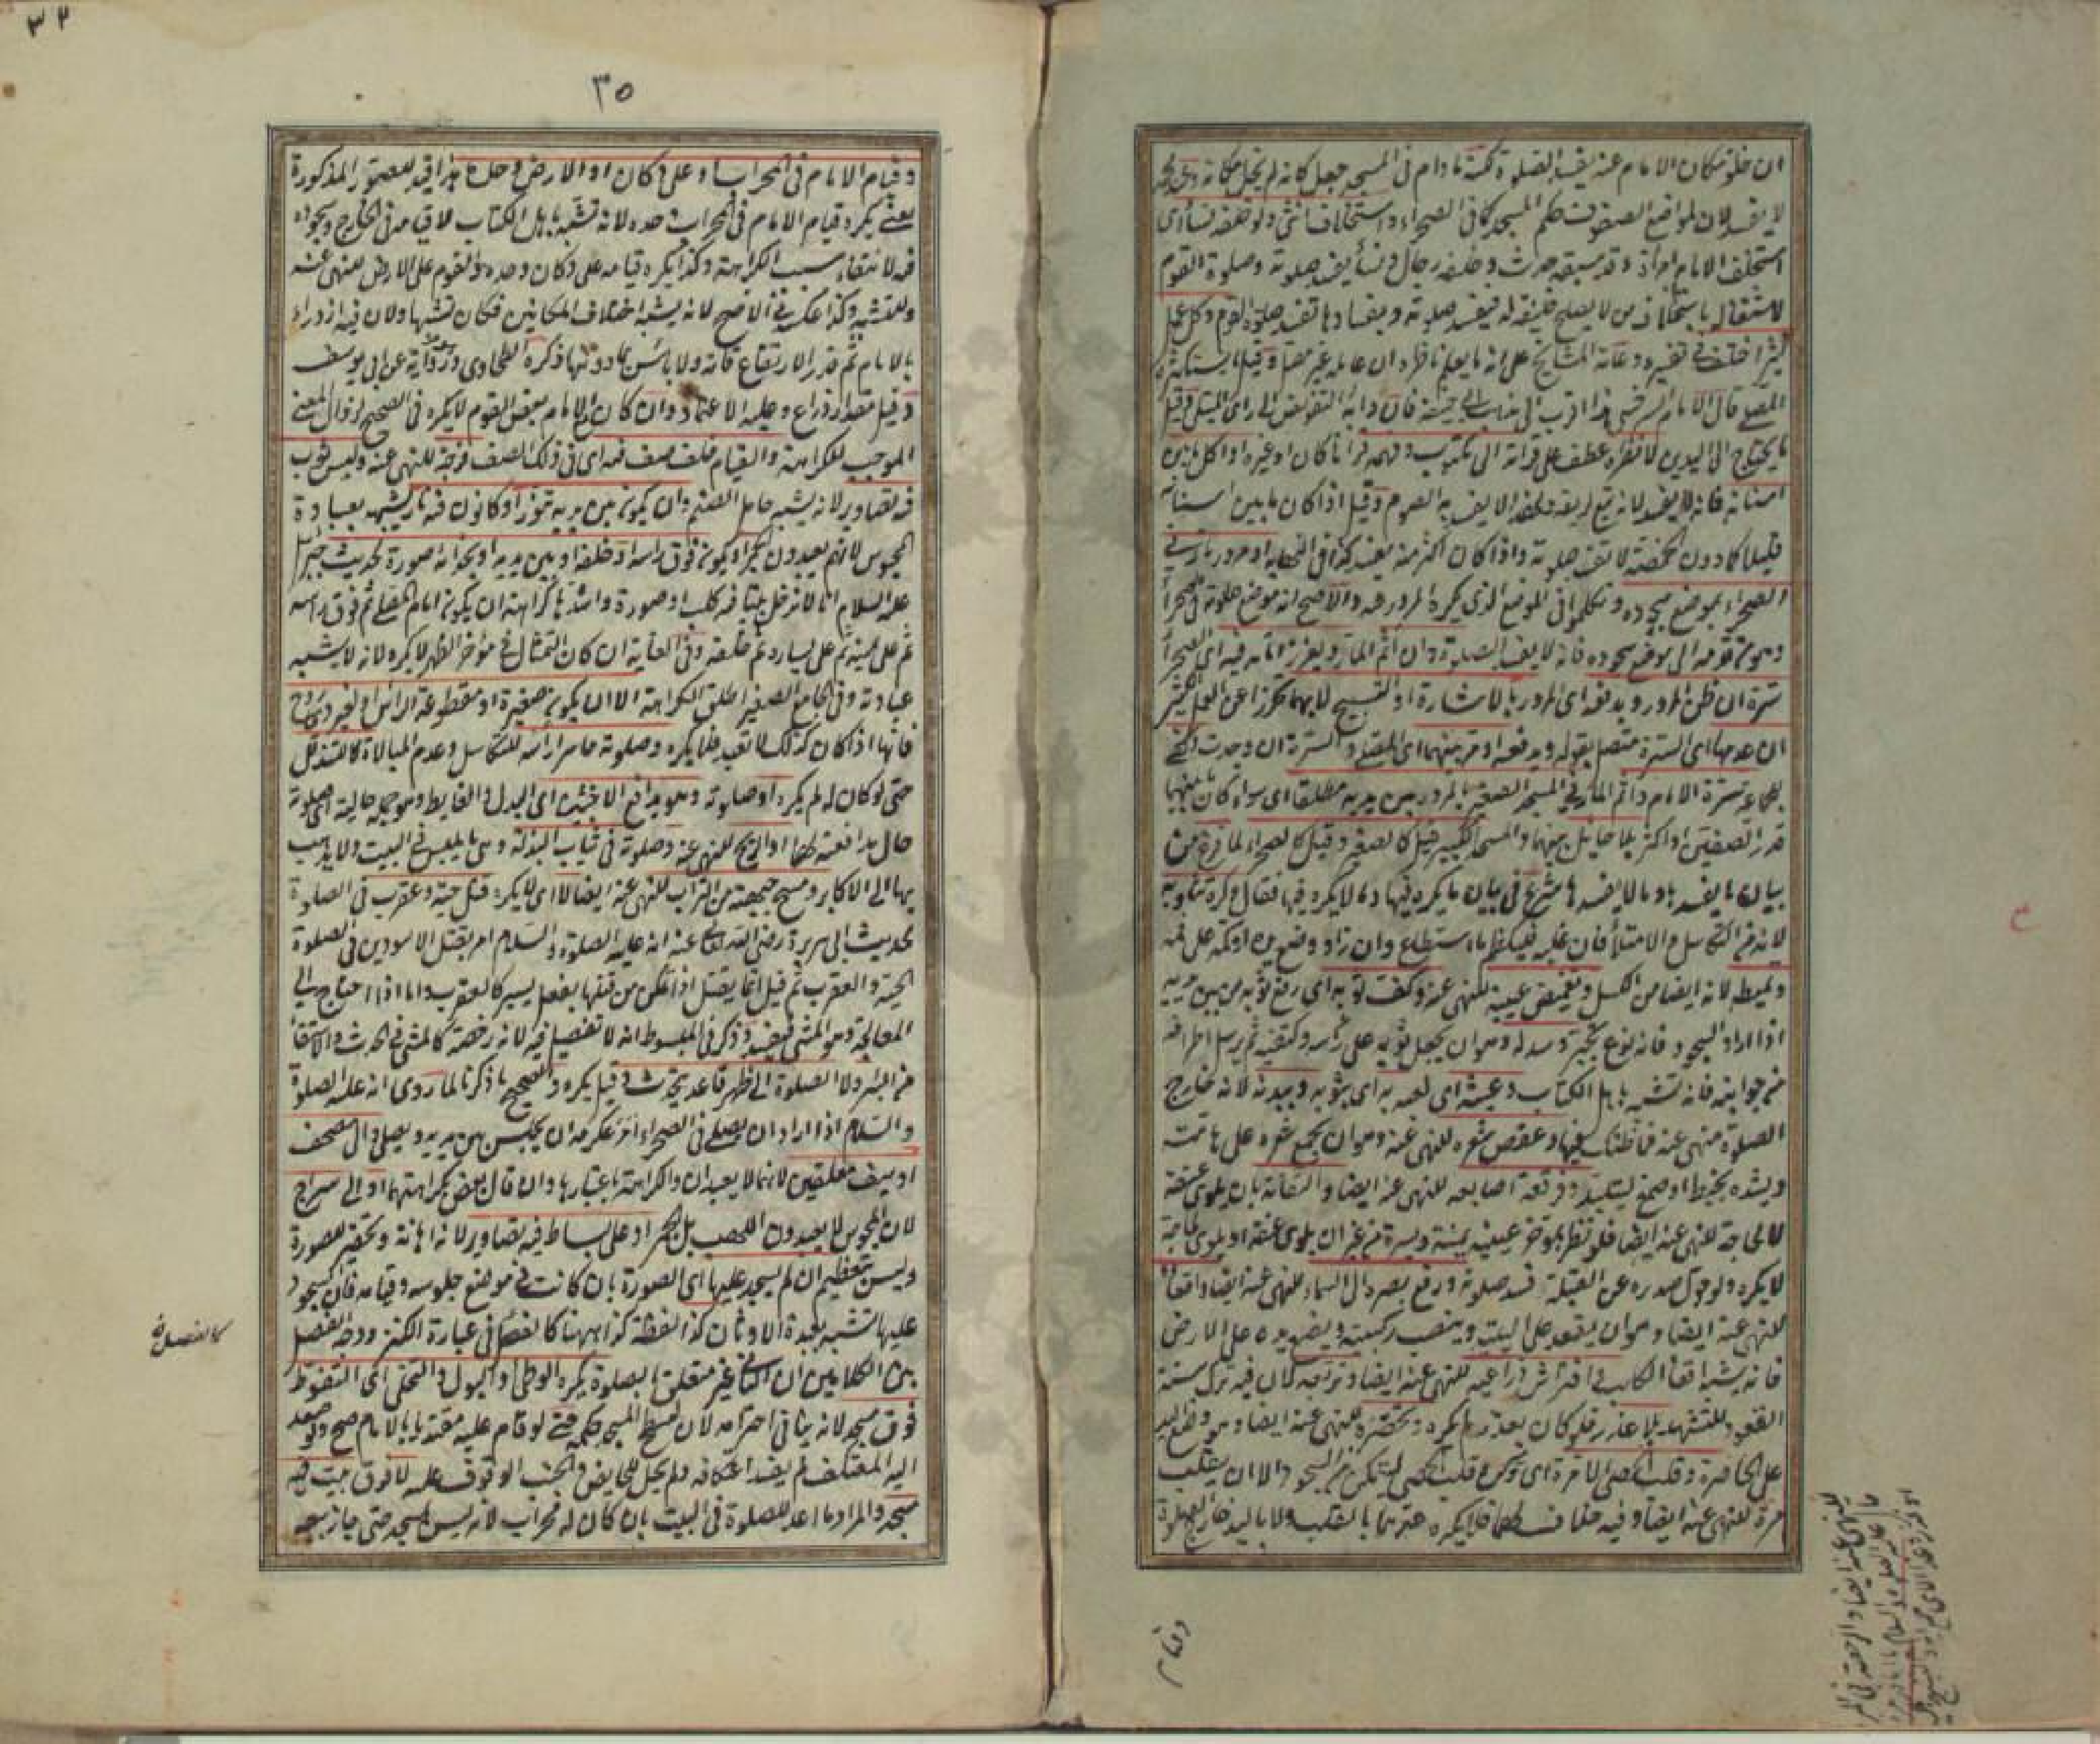 ان خلو مكان الامام عنه يفسد الصلوة لكنه ما دام فى المسجد جعل كانه لم يخل مكانه وعن محمد
لا يفسد لان لمواضع الصفوف حكم المسجد كما فى الصحراء واستخلاف انثى ولو خلفه نساء اى
استخلف الامام امرأة وقد سبقه حدث وخلفه رجال ونساء يفسد صلوته وصلوة القوم
لاشتغاله باستخلاف من لا يصلح خليفة له فيفسد صلوته وبفسادها تفسد صلوة القوم وكل عمل
كثير اختلف فى تفسيره وعامة المشايخ على انه ما يعلم ناظره ان عامله غير مصل وقيل ما يستكثره
المصلى قال الامام السرخسى هذا اقرب الى مذهب ابى حنيفة فان دأبه التفويض الى رأى المبتلى وقيل
ما يحتاج الى اليدين لا نظره عطف على قراءته الى مكتوب وفهمه قرآنا كان او غيره او اكل ما بين
اسنانه فانه لا يفسد لانه تبع لريقه ولهذا لا يفسد به الصوم وقيل اذا كان ما بين اسنانه
قليلا كما دون الحمصة لا تفسد صلوته واذا كان اكثر منه يفسد كذا فى النهاية او مرور مار فى
الصحراء بموضع سجوده وتكلموا فى الموضع الذى يكره المرور فيه والاصح انه موضع صلوته فى الصحراء
وهو من قدمه الى موضع سجوده فانه لا يفسد الصلوة وان اثم المار ويغرز امامه فيه اى الصحراء
سترة ان ظن المرور ويدفعه اى المرور بالاشارة او التسبيح لا بهما تحرزا عن العمل الكثير
ان عدمها اى السترة متصل بقوله ويدفعه او مر بينهما اى المصلى والسترة ان وجدت وكفى
لجماعة سترة الامام واثم المار فى المسجد الصغير بالمرور بين يديه مطلقا اى سواء كان بينهما
قدر الصفين او اكثر بلا حايل بينهما والمسجد الكبير قيل كالصغير وقيل كالصحراء لما فرغ من
بيان ما يفسدها وما لا يفسدها شرع فى بيان ما يكره فيها وما لا يكره فيها فقال وكره تثاؤبه
لانه من التكاسل والامتلاء فان غلبه فليكظم ما استطاع وان زاد وضع يده او كمه على فمه
وتمطيه لانه ايضا من الكسل وتغميض عينيه للنهى عنه وكف ثوبه اى رفع ثوبه من بين يديه
اذا اراد السجود فانه نوع تجبر وسدله وهو ان يجعل ثوبه على رأسه وكتفيه ثم يرسل اطرافه
من جوانبه فانه تشبه باهل الكتاب وعبثه اى لعبه به اى بثوبه وببدنه لانه خارج
الصلوة منهى عنه فما ظنك فيها وعقص شعره للنهى عنه وهو ان يجمع شعره على هامته
ويشده بخيط او صمغ ليتلبد وفرقعة اصابعه للنهى عنه ايضا والتفاته بان يلوى عنقه
لا لحاجة للنهى عنه ايضا فلو نظر بمؤخر عينيه يمنة ويسرة من غير ان يلوى عنقه او يلوى لحاجة
لا يكره ولو حول صدره عن القبلة فسد صلوته ورفع بصره الى السماء للنهى عنه ايضا واقعاؤه
للنهى عنه ايضا وهو ان يقعد على اليتيه وينصب ركبتيه ويضع يديه على الارض
فانه يشبه اقعاء الكلب وافتراش ذراعيه للنهى عنه ايضا وتربعه لان فيه ترك سنة
القعود للتشهد بلا عذر فلو كان بعذر لم يكره وتخصره للنهى عنه ايضا وهو وضع اليد
على الخاصرة وقلب الحصى الا مرة اى وكره قلب الحصى ليتمكن من السجود الا ان يقلب
مرة للنهى عنه ايضا وفيه خلاف
وقيام
وقيام الامام فى المحراب او على دكان او الارض وحده هذا قيد للصور المذكورة
يعنى يكره قيام الامام فى المحراب وحده لانه تشبه باهل الكتاب لا قيامه فى الخارج وسجوده
فيه لانتفاء سبب الكراهة وكذا يكره قيامه على دكان وحده والقوم على الارض للنهى عنه
وللتشبه وكذا عكسه فى الاصح لانه يشبه اختلاف المكانين فكان تشبها ولان فيه ازدراء
بالامام ثم قدر الارتفاع قامة ولا باس بما دونها ذكره الطحاوى وهو رواية عن ابى يوسف
وقيل مقدار ذراع وعليه الاعتماد وان كان مع الامام بعض القوم لا يكره فى الصحيح لزوال المعنى
الموجب للكراهة والقيام خلف صف فيه اى فى ذلك الصف فرجة للنهى عنه ولبس ثوب
فيه تصاوير لانه يشبه حامل الصنم وان يكون بين يديه تنور او كانون فيه نار يشبه بعبادة
المجوس لانهم يعبدون الجمر او يكون فوق راسه او خلفه او بين يديه او بحذائه صورة لحديث جبرئيل
عليه السلام انا لا ندخل بيتا فيه كلب او صورة واشدها كراهة ان يكون امام المصلى ثم فوق راسه
ثم على يمينه ثم على يساره ثم خلفه وفى الغاية ان كان التمثال فى مؤخر الظهر لا يكره لانه لا يشبه
عبادته وفى الجامع الصغير اطلق الكراهة الا ان يكون صغيرة او مقطوعة الراس او لغير ذى روح
فانها اذا كان كذلك لا تعبد فلا يكره وصلوته حاسرا رأسه للتكاسل وعدم المبالاة لا للتذلل
حتى لو كان له لم يكره او صلوته وهو يدافع الاخبثين اى البول والغايط وهو جملة حالية اى صلوته
حال مدافعته لهما او الريح للنهى عنه وصلوته فى ثياب البذلة وهى ما يلبس فى البيت ولا يذهب
بها الى الاكابر ومسح جبهته من التراب للنهى عنه ايضا لا اى لا يكره قتل حية وعقرب فى الصلوة
لحديث ابى هريرة رضى الله تعالى عنه انه عليه الصلوة والسلام امر بقتل الاسودين فى الصلوة
الحية والعقرب ثم قيل انما يقتل اذا تمكن من قتلها بفعل يسير كالعقرب واما اذا احتاج الى
المعالجة وهو المشى فيفسد وذكر فى المبسوط انه لا تفصيل فيه لانه رخصة كالمشى فى الحدث والاستقاء
من البئر ولا الصلوة الى ظهر قاعد يتحدث وقيل يكره والصحيح ما ذكرنا لما روى انه عليه الصلوة
والسلام اذا اراد ان يصلى فى الصحراء امر عكرمة ان يجلس بين يديه ويصلى والى مصحف
او سيف معلقين لانهما لا يعبدان والكراهة باعتبارها وان قال بعض بكراهتهما او الى سراج
لان المجوس لا يعبدون اللهب بل الجمر او على بساط فيه تصاوير لانه اهانة وتحقير للصورة
وليس تعظيم ان لم يسجد عليها اى الصورة بان كانت فى موضع جلوسه وقيامه فان السجود
عليها تشبه بعبدة الاوثان كذا لفظة كذا ههنا كالفصل فى عبارة الكنز ووجه الفصل
بين الكلامين ان الثانى غير متعلق بالصلوة يكره الوطئ والبول والتخلى اى التغوط
فوق مسجد لانه ينافى احترامه لان لسطح المسجد حكمه حتى لو قام عليه مقتديا بالامام صح ولو صعد
اليه المعتكف لم يفسد اعتكافه ولم يحل للحايض والجنب الوقوف عليه لا فوق بيت فيه
مسجد والمراد ما اعد للصلوة فى البيت بان كان له محراب لانه ليس بمسجد حتى جاز بيعه
كالفصل
٣٥
٣٢